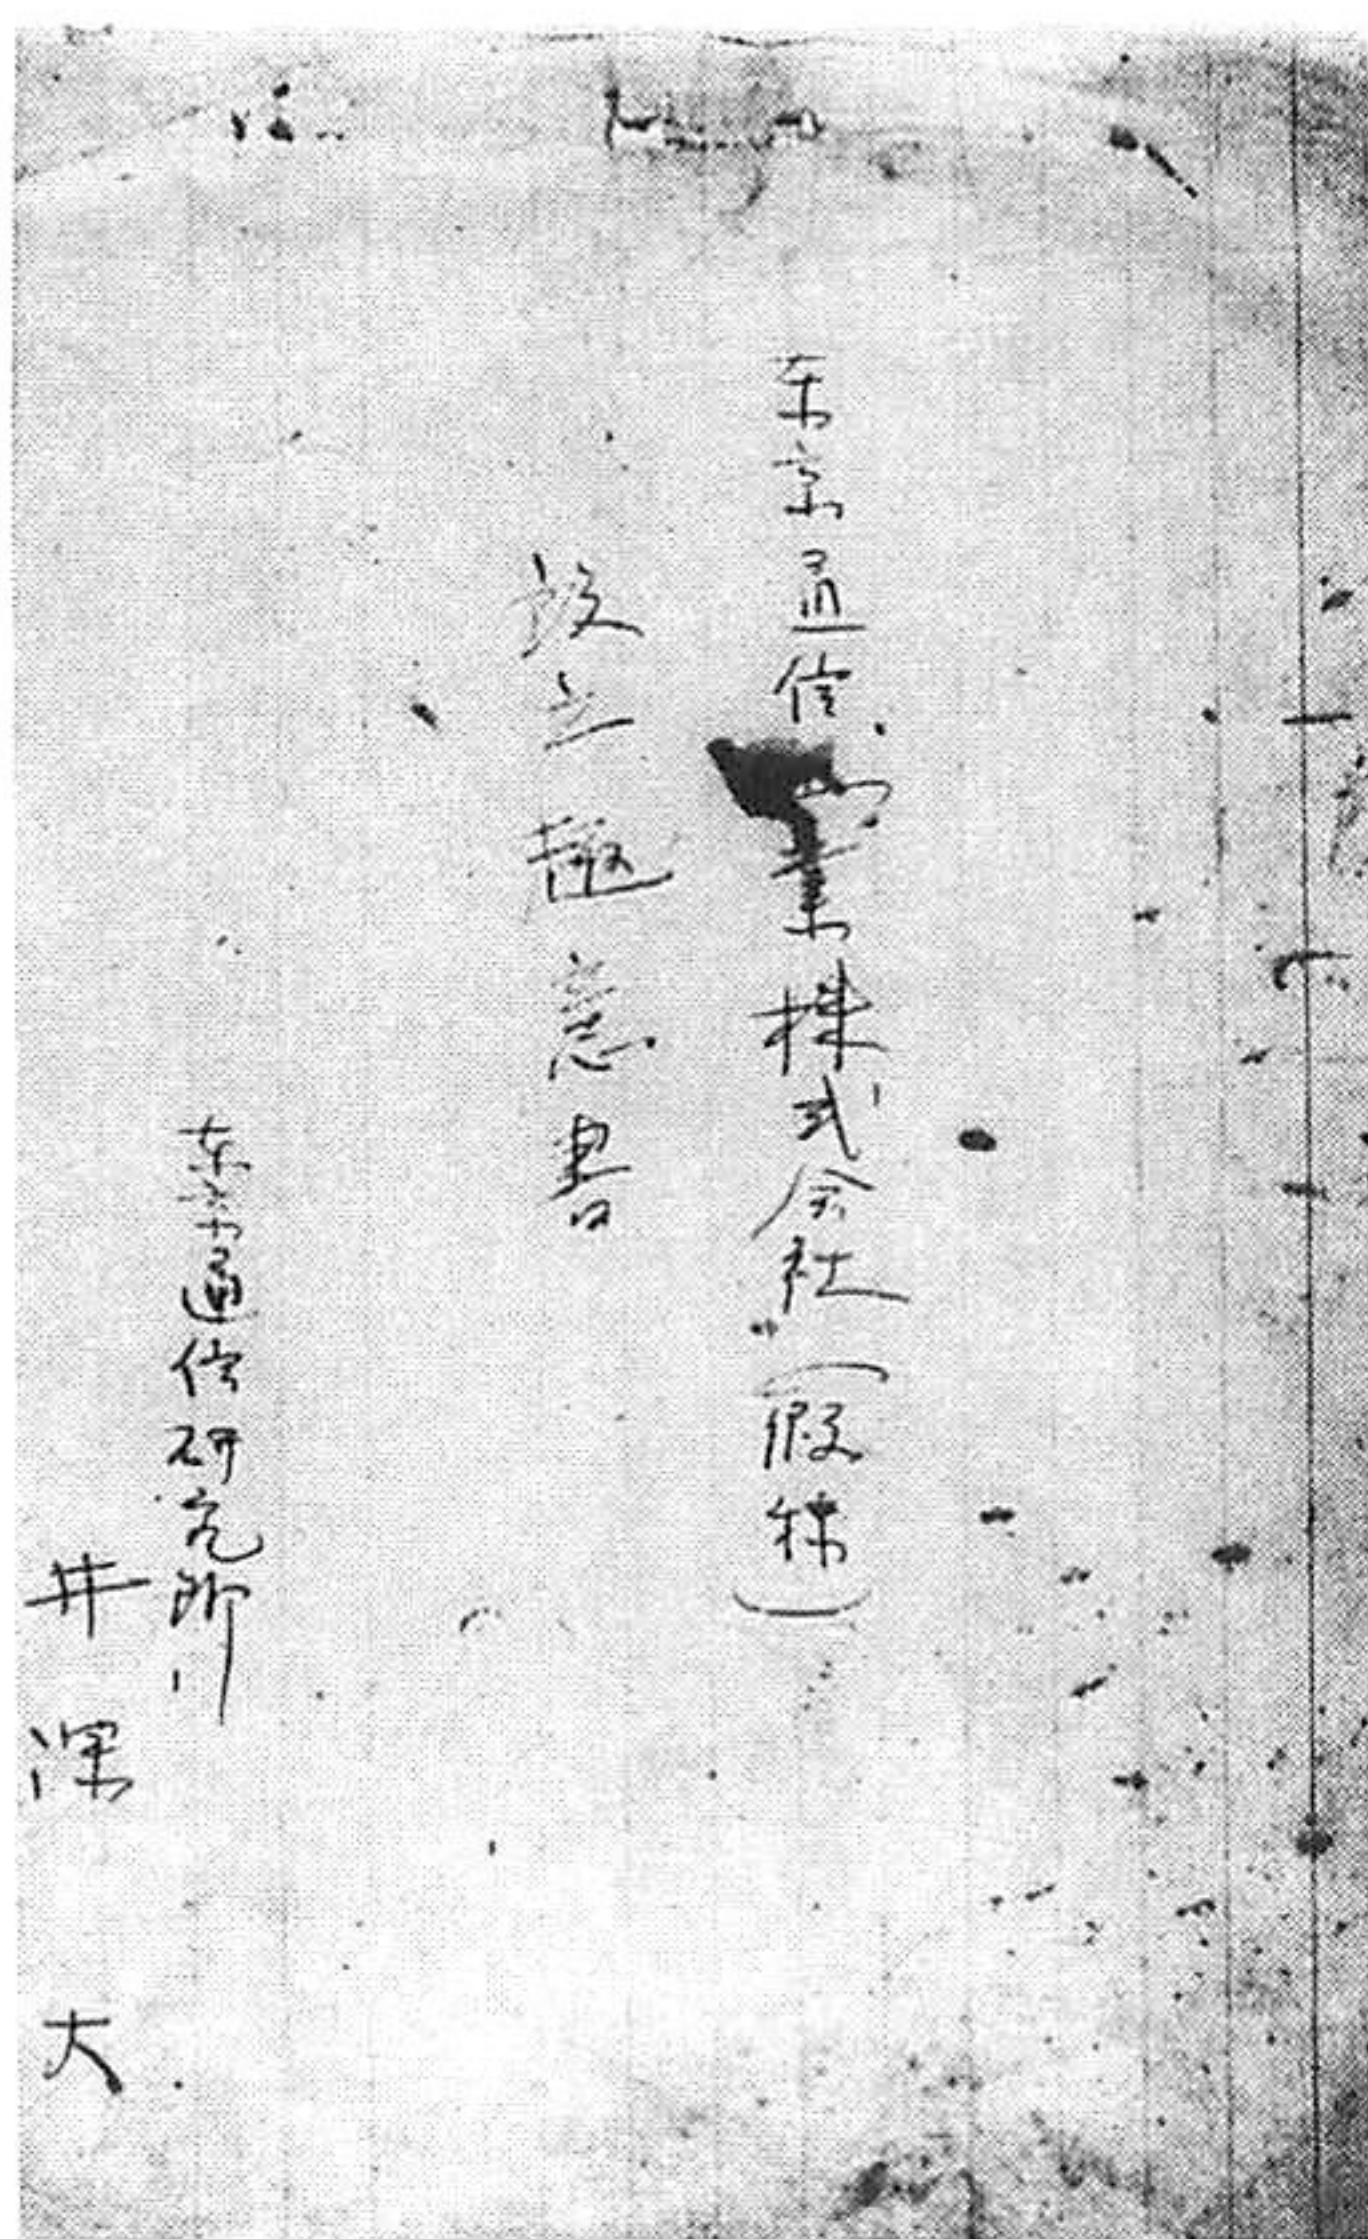 东京通信工業株式会社（假称）
設立趣意書
东京通信研究所
井深 大